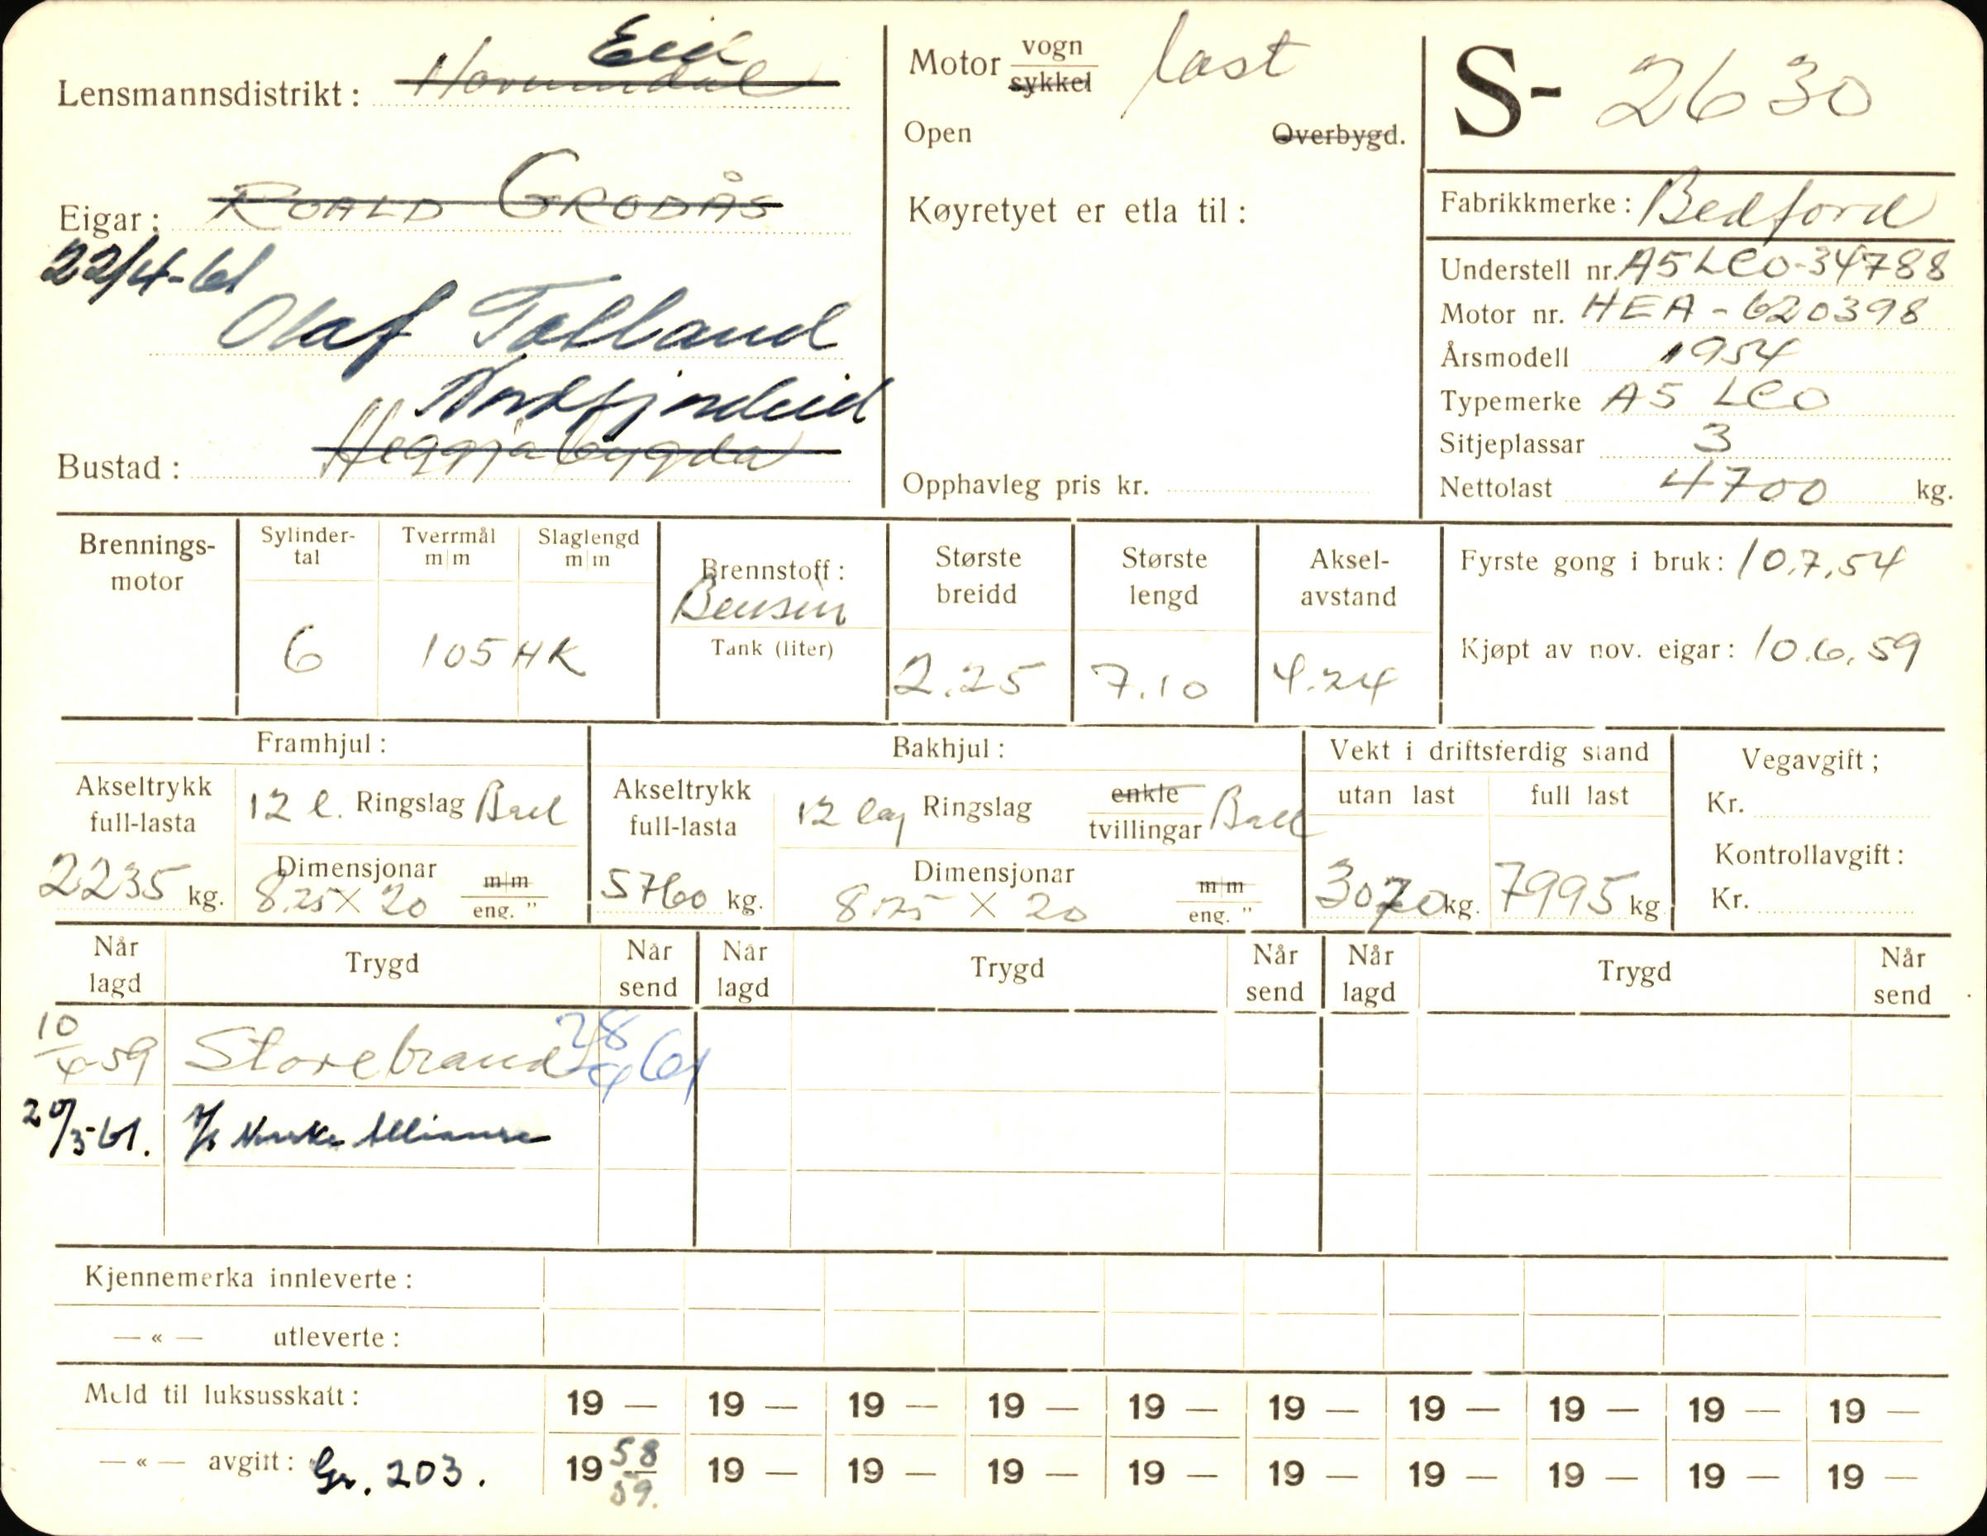 Lensmannsdistrikt: Hornindal Eid
Eigar: ROALD GRODÅS
22/4-61
Olaf Tolland
Nordfjordeid
Bustad: Heggjabygda
Motor vogn last
sykkel
Open Overbygd.
Køyretyet er etla til:
Opphavleg pris kr.
S- 2630
Fabrikkmerke: Bedford
Understell nr. A5LCO-34788
Motor nr. HEA-620398
Årsmodell 1954
Typemerke A5 LCO
Sitjeplassar 3
Nettolast 4700 kg.
Brennings-
motor
Sylinder-
tal
6
Tverrmål
m|m
Slaglengd
m|m
105 HK
Brennstoff:
Bensin
Tank (liter)
Største
breidd
2.25
Største
lengd
7.10
Aksel-
avstand
4.24
Fyrste gong i bruk: 10.7.54
Kjøpt av nov. eigar: 10.6.59
Framhjul:
Akseltrykk
full-lasta
2235 kg.
12 l. Ringslag Ball
Dimensjonar
8.25 X 20
m|m
eng. "
Bakhjul:
Akseltrykk
full-lasta
5760 kg.
12 lag Ringslag enkle
tvillingar Ball
Dimensjonar
8.25 X 20
m|m
eng. "
Vekt i driftsferdig stand
utan last
3070 kg.
full last
7995 kg
Vegavgift;
Kr.
Kontrollavgift:
Kr.
Når
lagd
Trygd
Når
send
Når
lagd
Trygd
Når
send
Når
lagd
Trygd
Når
send
10/4-59 Storebrand 28/4 61
20/3-61. A/S Norske Alliance
Kjennemerka innleverte:
— « — utleverte:
Meld til luksusskatt: 19 — 19 — 19 — 19 — 19 — 19 — 19 — 19 — 19 — 19 —
— « — avgift: Gr. 203. 19 58/59. 19 — 19 — 19 — 19 — 19 — 19 — 19 — 19 — 19 —